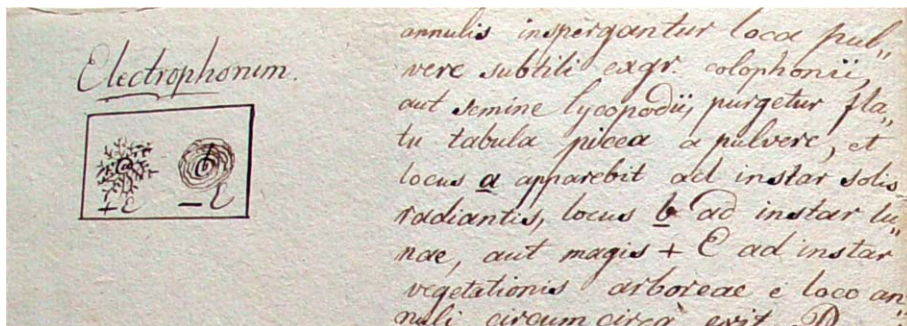 Electrophorum.
a b
+E -E
annulis inspergantur loca pul„
vere subtili exgr. colophonii,
aut semine lycopodii, purgetur fla„
tu tabula picea a pulvere, et
locus a apparebit ad instar solis
radiantis, locus b ad instar lu„
nae, aut magis + E ad instar
vegetationis arboreae e loco an„
nuli circumcirca erit